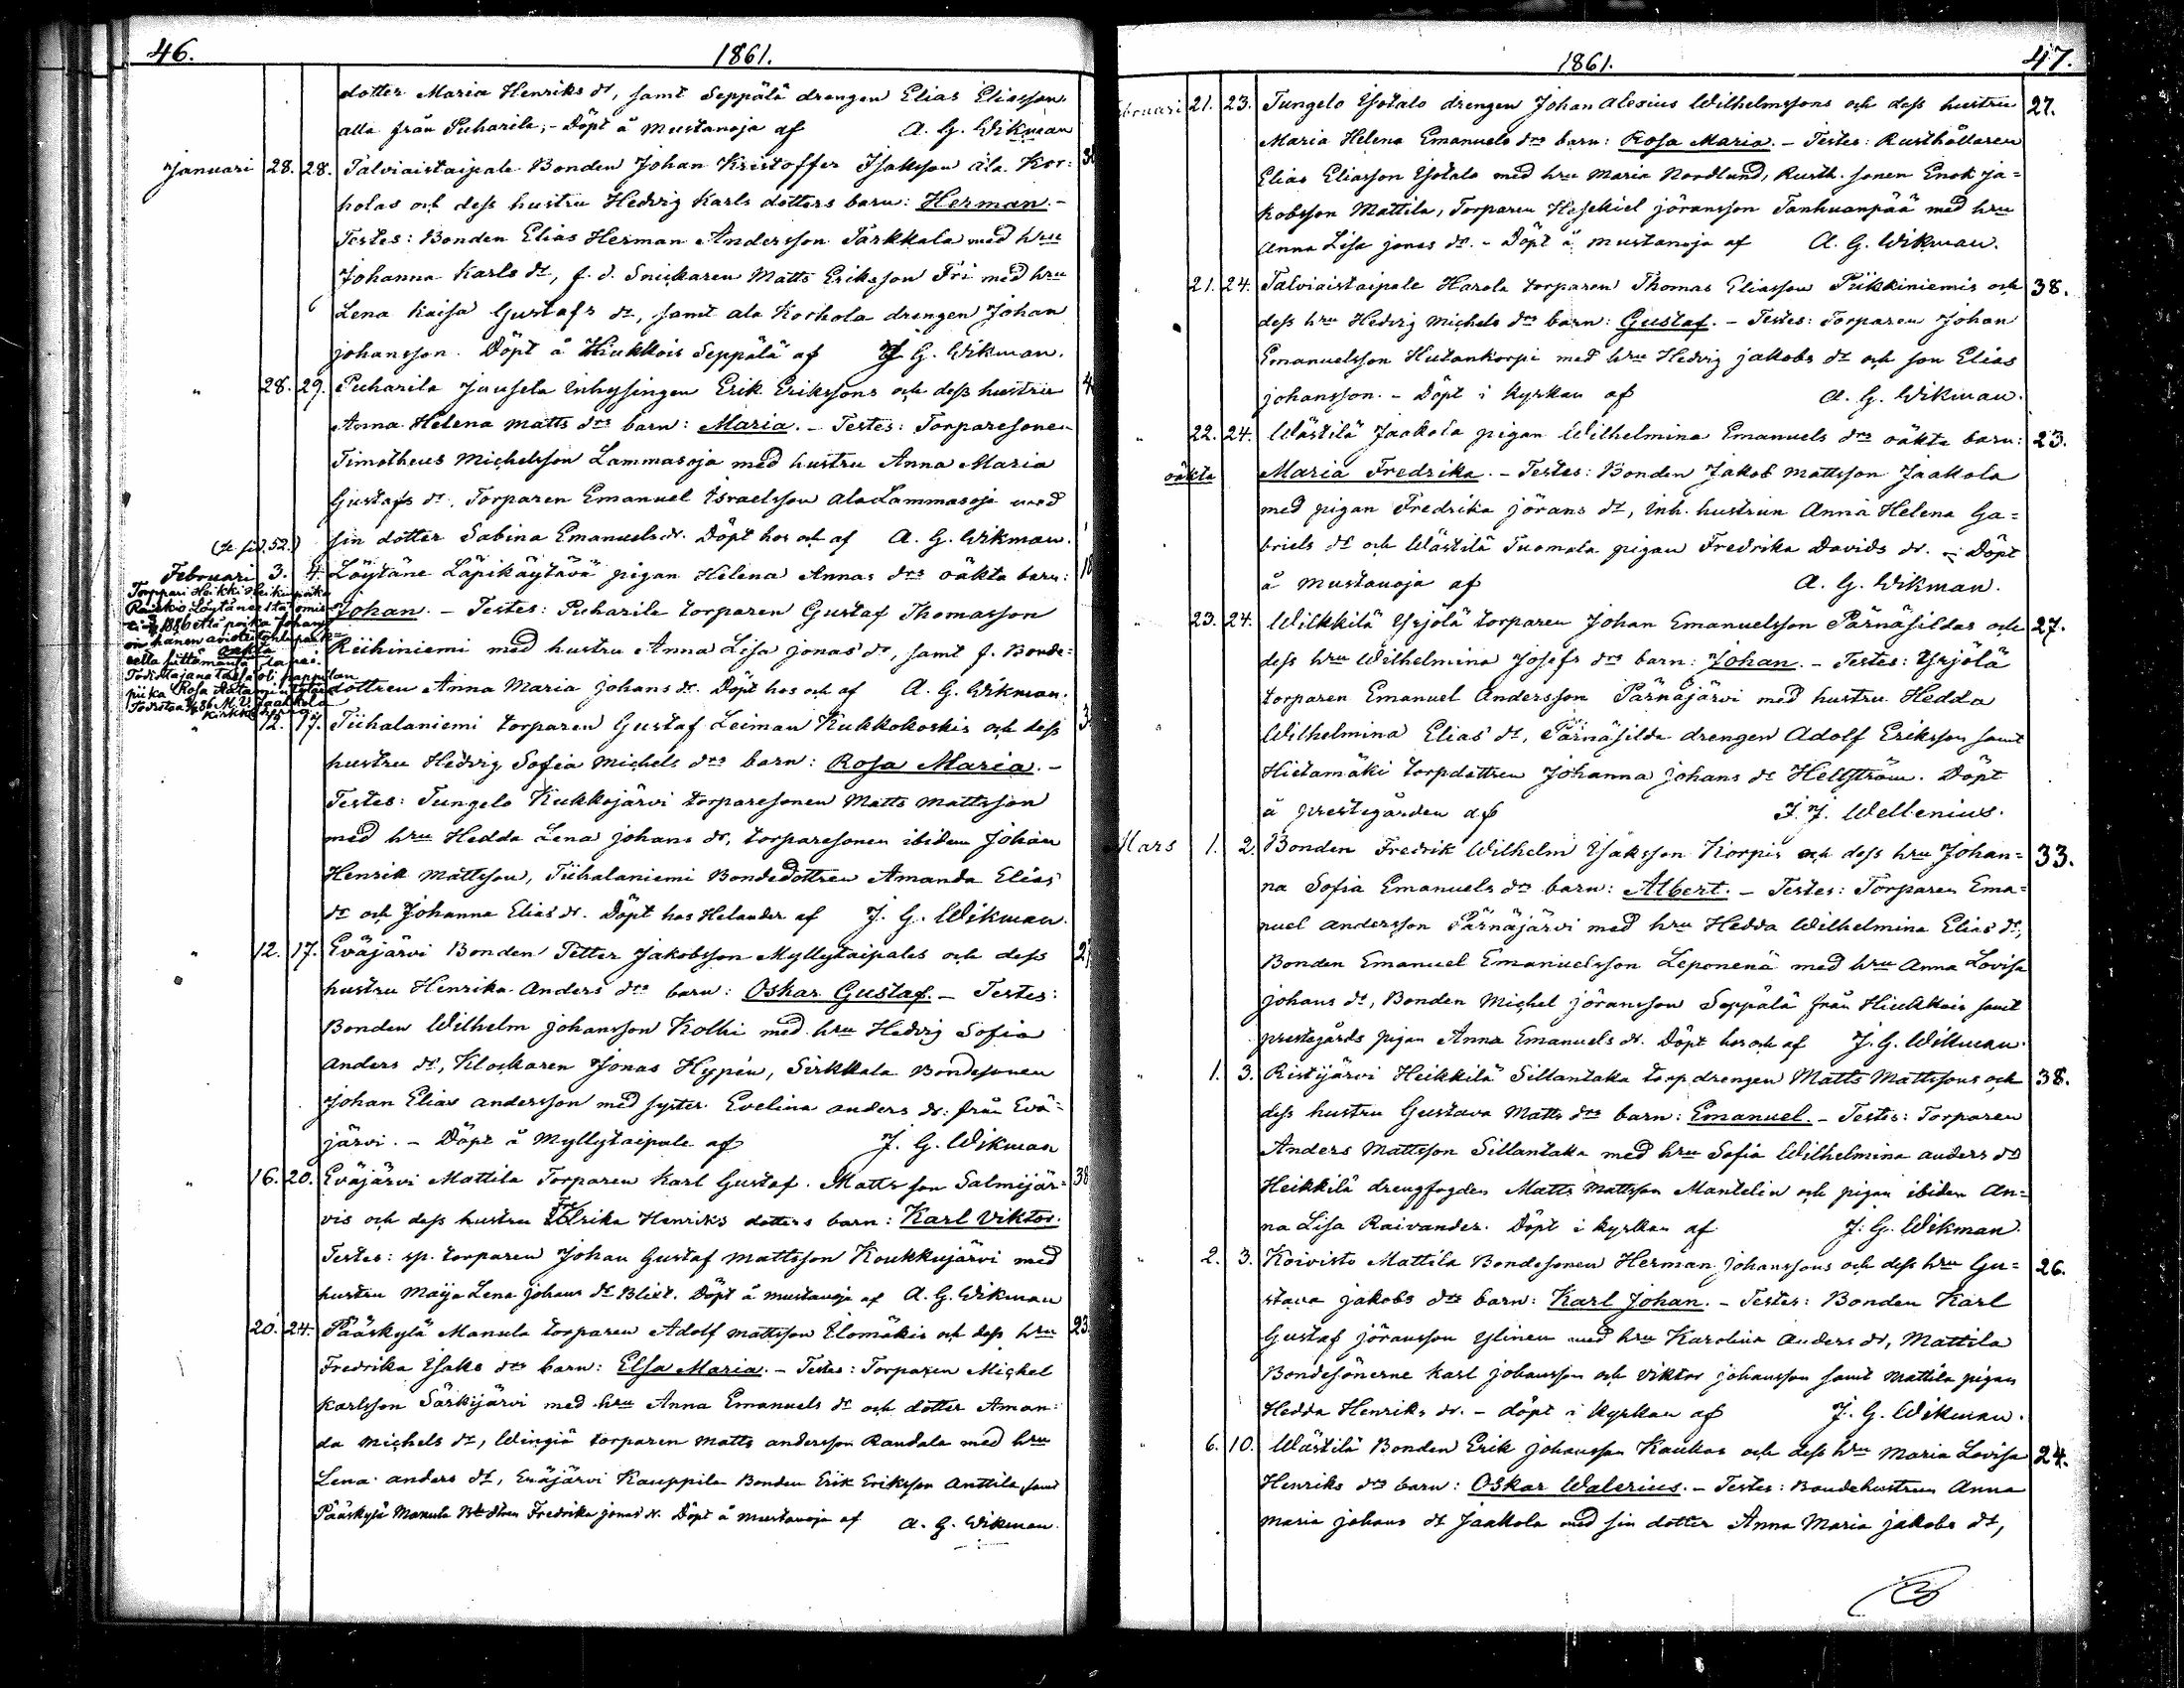 46.
1861.
dotter Maria Henriks dr, samt Seppälä drengen Elias Eliasson
alla från Puharila; - Döpt å Mustanoja af A. G. Wikman
Januari 28. 28. Talviaistaipale Bonden Johan Kristoffer Isaksson ala Kor=
holas och dess hustru Hedvig Karls dotters barn: Herman. -
Testes: Bonden Elias Herman Andersson Tarkkala med hru
Johanna Karls dr, f. d. Snickaren Matts Eriksson Fri med hru
Lena Kaisa Gustafs dr, samt ala Korhola drengen Johan
Johansson. Döpt å Hiukkois Seppälä af J. G. Wikman.
" 28. 29. Puharila Jausela Inhysingen Erik Erikssons och dess hustru
Anna Helena Matts drs barn: Maria. - Testes: Torparesonen
Timotheus Michelsson Lammasoja med hustru Anna Maria
Gustafs dr, Torparen Emanuel Israelsson ala Lammasoja med
sin dotter Sabina Emanuels dr. Döpt hos och af A. G. Wikman.
(Se sid. 52.)
Februari 3. 4. Löytäne Läpikäytävä pigan Helena Annas drs oäkta barn:
Torppari Heikki Heikinpoika
Johan. - Testes: Puharila torparen Gustaf Thomasson
1886 että poika Johan
on hänen
Riihiniemi med hustru Anna Lisa Jonas dr, samt f. Bonde=
oäkta
dottren Anna Maria Johans dr. Döpt hos och af A. G. Wikman.
" 12. 17. Tiihalaniemi torparen Gustaf Leiman Kukkokoskis och dess
hustru Hedvig Sofia Michels drs barn: Rosa Maria. -
Testes: Tungelo Kukkojärvi torparesonen Matts Mattsson
med hru Hedda Lena Johans dr, torparesonen ibidem Johan
Henrik Mattsson, Tiihalaniemi Bondedottren Amanda Elias
dr och Johanna Elias dr. Döpt hos Helander af J. G. Wikman.
" 12. 17. Eväjärvi Bonden Petter Jakobsson Myllytaipales och dess
hustru Henrika Anders drs barn: Oskar Gustaf. - Testes:
Bonden Wilhelm Johansson Kolhi med hru Hedvig Sofia
Anders dr, Klockaren Jonas Hypén, Sirkkala Bondesonen
Johan Elias Andersson med syster Evelina Anders dr: från Evä=
järvi. - Döpt å Myllytaipale af J. G. Wikman
" 16. 20. Eväjärvi Mattila Torparen Karl Gustaf Mattsson Salmijär= 38
vis och dess hustru Ulrika Henriks dotters barn: Karl Viktor.
Testes: sp. torparen Johan Gustaf Mattsson Koukkujärvi med
hustru Maija Lena Johans dr Blixt. Döpt å Mustanoja af A. G. Wikman
20. 24. Pääskylä Manula torparen Adolf Mattsson Elomäkis och dess hru 23.
Fredrika Isaks drs barn: Elsa Maria. - Testes: Torparen Michel
Karlsson Särkijärvi med hru Anna Emanuels dr och dotter Aman=
da Michels dr, Wingiä torparen Matts Andersson Randala med hru
Lena Anders dr, Eväjärvi Kauppila Bonden Erik Eriksson Anttila, samt
Pääskylä Manula Fredrika Jonas dr. Döpt å Mustanoja af A. G. Wikman.
1861.
47.
Februari 21. 23. Tungelo Isotalo drengen Johan Alexius Wilhelmssons och dess hustru 27.
Maria Helena Emanuels drs barn: Rosa Maria. - Testes: Rusthållaren
Elias Eliasson Isotalo med hru Maria Nordlund, Rusth. sonen Enok Ja=
kobsson Mattila, Torparen Hesekiel Jöransson Tanhuanpää med hru
Anna Lisa Jonas dr. - Döpt å Mustanoja af A. G. Wikman.
" 21. 24. Talviaistaipale Harola torparen Thomas Eliasson Piikkiniemis och 38.
dess hru Hedvig Michels drs barn: Gustaf. - Testes: Torparen Johan
Emanuelsson Hutankorpi med hru Hedvig Jakobs dr och son Elias
Johansson. - Döpt i kyrkan af A. G. Wikman.
" 22. 24. Wästilä Jaakola pigan Wilhelmina Emanuels drs oäkta barn: 23.
oäkta Maria Fredrika. - Testes: Bonden Jakob Mattsson Jaakola
med pigan Fredrika Jörans dr, Inh. hustrun Anna Helena Ga=
briels dr och Wästilä Tuomala pigan Fredrika Davids dr. - Döpt
å Mustanoja af A. G. Wikman.
" 23. 24. Wilkkilä Yrjölä torparen Johan Emanuelsson Pärnäsildas och 27.
dess hru Wilhelmina Josefs drs barn: Johan. - Testes: Yrjölä
torparen Emanuel Andersson Pärnäjärvi med hustru Hedda
Wilhelmina Elias dr, Pärnäsilda drengen Adolf Eriksson samt
Hietamäki torpdottren Johanna Johans dr Hellström. Döpt
å prestegården af J. J. Wellenius.
Mars 1. 2. Bonden Fredrik Wilhelm Isaksson Korpis och dess hru Johan= 33.
na Sofia Emanuels drs barn: Albert. - Testes: Torparen Ema=
nuel Andersson Pärnäjärvi med hru Hedda Wilhelmina Elias dr,
Bonden Emanuel Emanuelsson Leponenä med hru Anna Lovisa
Johans dr, Bonden Michel Jöransson Seppälä från Hiukkois samt
prestegårds pigan Anna Emanuels dr. Döpt hos och af J. G. Wikman.
" 1. 3. Ristijärvi Heikkilä Sillantaka torpdrengen Matts Mattssons och 38.
dess hustru Gustava Matts drs barn: Emanuel. - Testes: Torparen
Anders Mattsson Sillantaka med hru Sofia Wilhelmina Anders dr
Heikkilä drengfogden Matts Mattsson Mantelin och pigan ibidem An=
na Lisa Raivander. Döpt i kyrkan af J. G. Wikman.
" 2. 3. Koivisto Mattila Bondesonen Herman Johanssons och dess hru Gu= 26.
stava Jakobs drs barn: Karl Johan. - Testes: Bonden Karl
Gustaf Jöransson Ylinen med hru Karolina Anders dr, Mattila
Bondesönerne Karl Johansson och Viktor Johansson samt Mattila pigan
Hedda Henriks dr. - döpt i kyrkan af J. G. Wikman.
" 6. 10. Wästilä Bonden Erik Johansson Kaukas och dess hru Maria Lovisa 24.
Henriks drs barn: Oskar Walerius. - Testes: Bondehustrun Anna
Maria Johans dr Jaakola med sin dotter Anna Maria Jakobs dr,